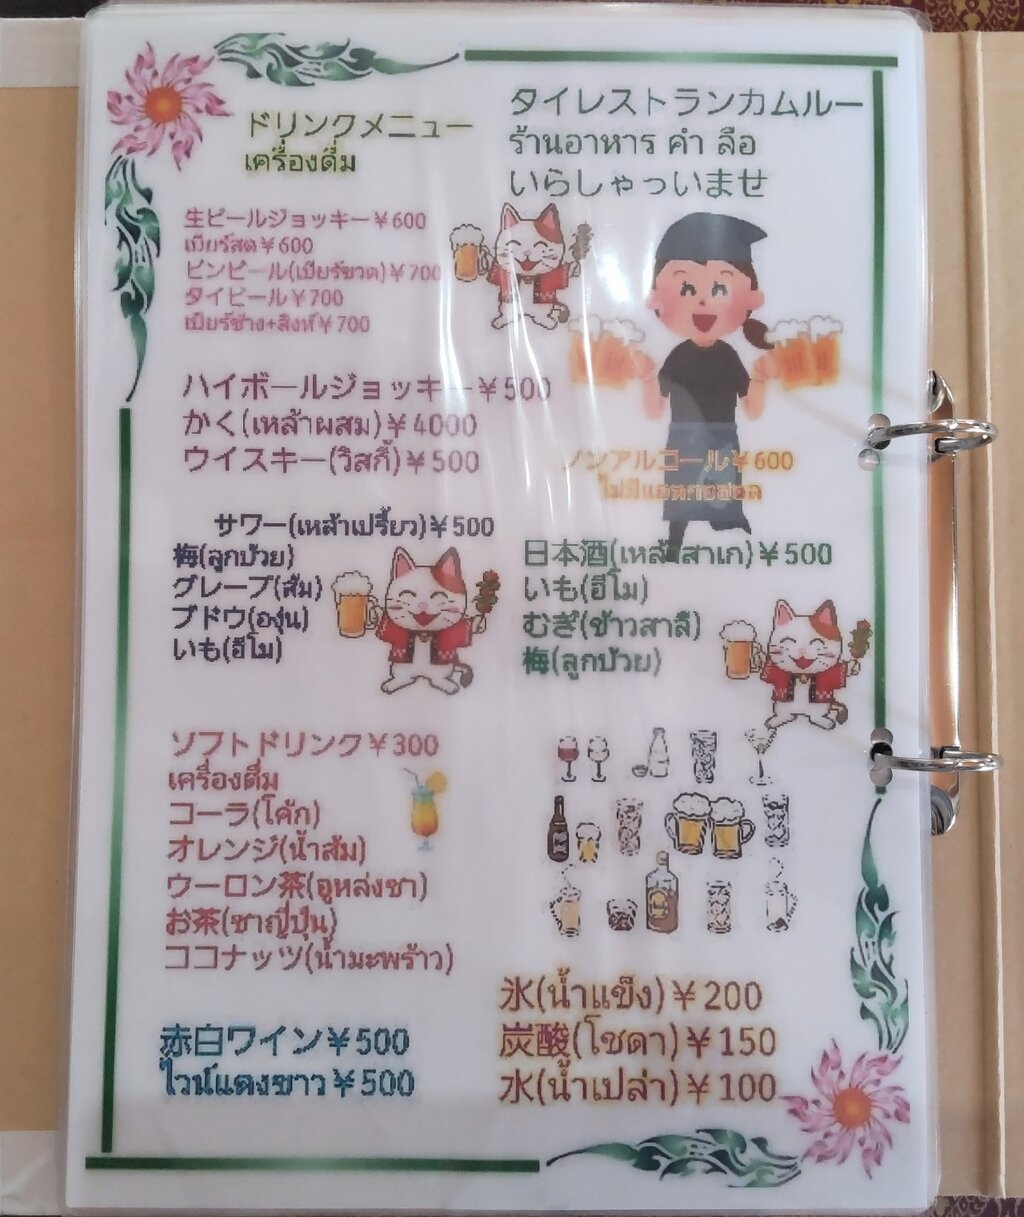 ドリンクメニュー
เครื่องดื่ม
タイレストランカムルー
ร้านอาหาร คำ ลือ
いらしゃっいませ
生ビールジョッキー￥600
เบียร์สด￥600
ビンビール(เบียร์ขวด)￥700
タイビール￥700
เบียร์ช้าง+สิงห์￥700
ハイボールジョッキー￥500
かく(เหล้าผสม)￥4000
ウイスキー(วิสกี้)￥500
ノンアルコール￥600
ไม่มีแอลกอฮอล
サワー(เหล้าเปรี้ยว)￥500
梅(ลูกป๋วย)
グレープ(ส้ม)
ブドウ(องุ่น)
いも(ฮีโม)
日本酒(เหล้าสาเก)￥500
いも(ฮีโม)
むぎ(ข้าวสาลี)
梅(ลูกป๋วย)
ソフトドリンク￥300
เครื่องดื่ม
コーラ(โค้ก)
オレンジ(น้ำส้ม)
ウーロン茶(อูหล่งชา)
お茶(ชาญี่ปุ่น)
ココナッツ(น้ำมะพร้าว)
赤白ワイン￥500
ไวน์แดงขาว￥500
氷(น้ำแข็ง)￥200
炭酸(โซดา)￥150
水(น้ำเปล่า)￥100